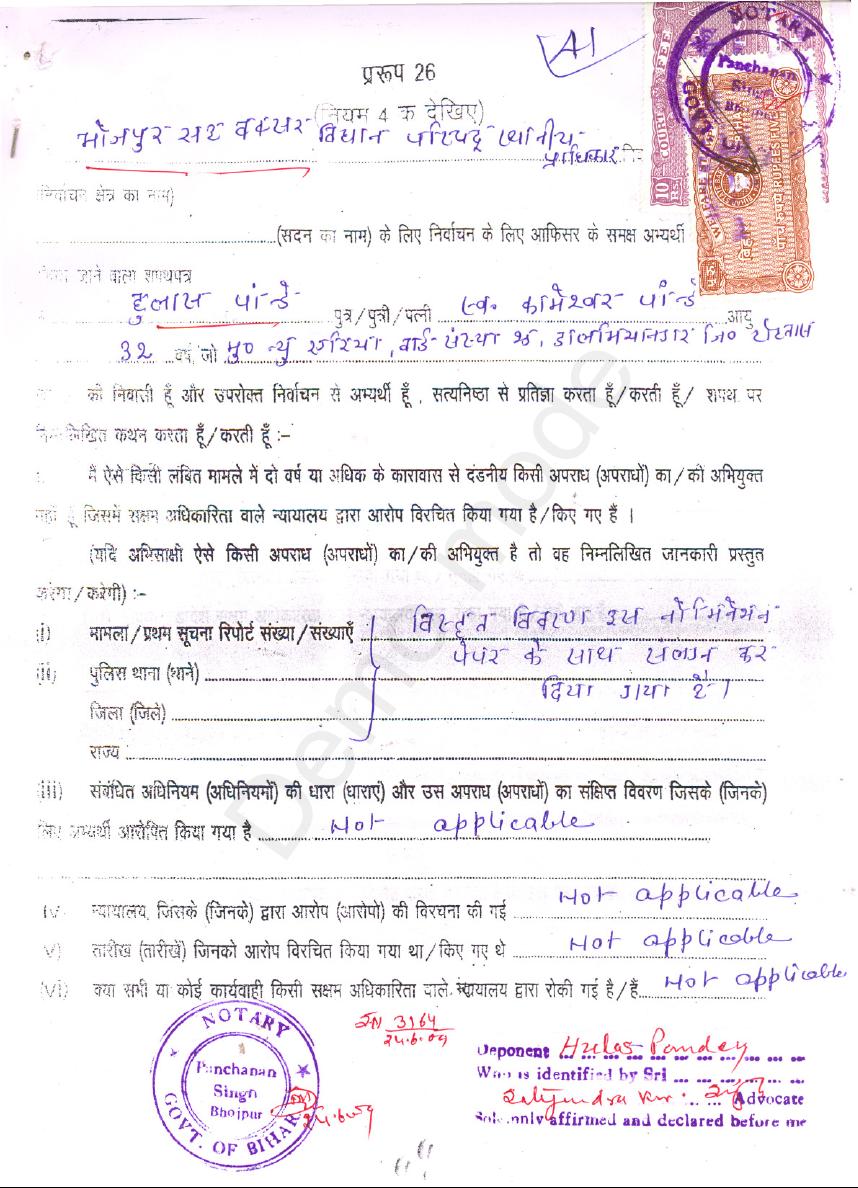 A1
प्ररूप 26
(नियम 4 क देखिए)
भोजपुर सह बक्सर विधान परिषद् स्थानीय
प्राधिकार
निर्वाचन क्षेत्र का नाम)
(सदन का नाम) के लिए निर्वाचन के लिए आफिसर के समक्ष अभ्यर्थी
किया जाने वाला शपथपत्र
हुलास पाण्डे पुत्र/पुत्री/पत्नी स्व. कामेश्वर पाण्डे आयु
32 वर्ष, जो मु० न्यु वार्ड संख्या डालमियानगर जि० रोहतास
की निवासी हूँ और उपरोक्त निर्वाचन से अभ्यर्थी हूँ , सत्यनिष्ठा से प्रतिज्ञा करता हूँ/करती हूँ/ शपथ पर
निम्नलिखित कथन करता हूँ/करती हूँ :–
मैं ऐसे किसी लंबित मामले में दो वर्ष या अधिक के कारावास से दंडनीय किसी अपराध (अपराधों) का/की अभियुक्त
नहीं हूँ जिसमें सक्षम अधिकारिता वाले न्यायालय द्वारा आरोप विरचित किया गया है/किए गए हैं ।
(यदि अभिसाक्षी ऐसे किसी अपराध (अपराधों) का/की अभियुक्त है तो वह निम्नलिखित जानकारी प्रस्तुत
करेगा/करेगी) :–
(i) मामला/प्रथम सूचना रिपोर्ट संख्या/संख्याएँ विस्तृत विवरण इस नोमिनेशन
(ii) पुलिस थाना (थाने) पेपर के साथ संलग्न कर
दिया गया है।
जिला (जिले)
राज्य
(iii) संबंधित अधिनियम (अधिनियमों) की धारा (धाराएं) और उस अपराध (अपराधों) का संक्षिप्त विवरण जिसके (जिनके)
लिए अभ्यर्थी आरोपित किया गया है Not applicable
iv) न्यायालय, जिसके (जिनके) द्वारा आरोप (आरोपो) की विरचना की गई Not applicable
v) तारीख (तारीखें) जिनको आरोप विरचित किया गया था/किए गए थे Not applicable
(vi) क्या सभी या कोई कार्यवाही किसी सक्षम अधिकारिता वाले न्यायालय द्वारा रोकी गई है/हैं Not applicable
SN 3164
24.6.09
Deponent Hulas Pandey
Who is identified by Sri
Advocate
Solemnly affirmed and declared before me
NOTARY
Panchanan
Singh
Bhojpur
GOVT. OF BIHAR
24.6.09
NOTARY
Panchanan
Singh
Bhojpur
COURT FEE
10
Demo mode